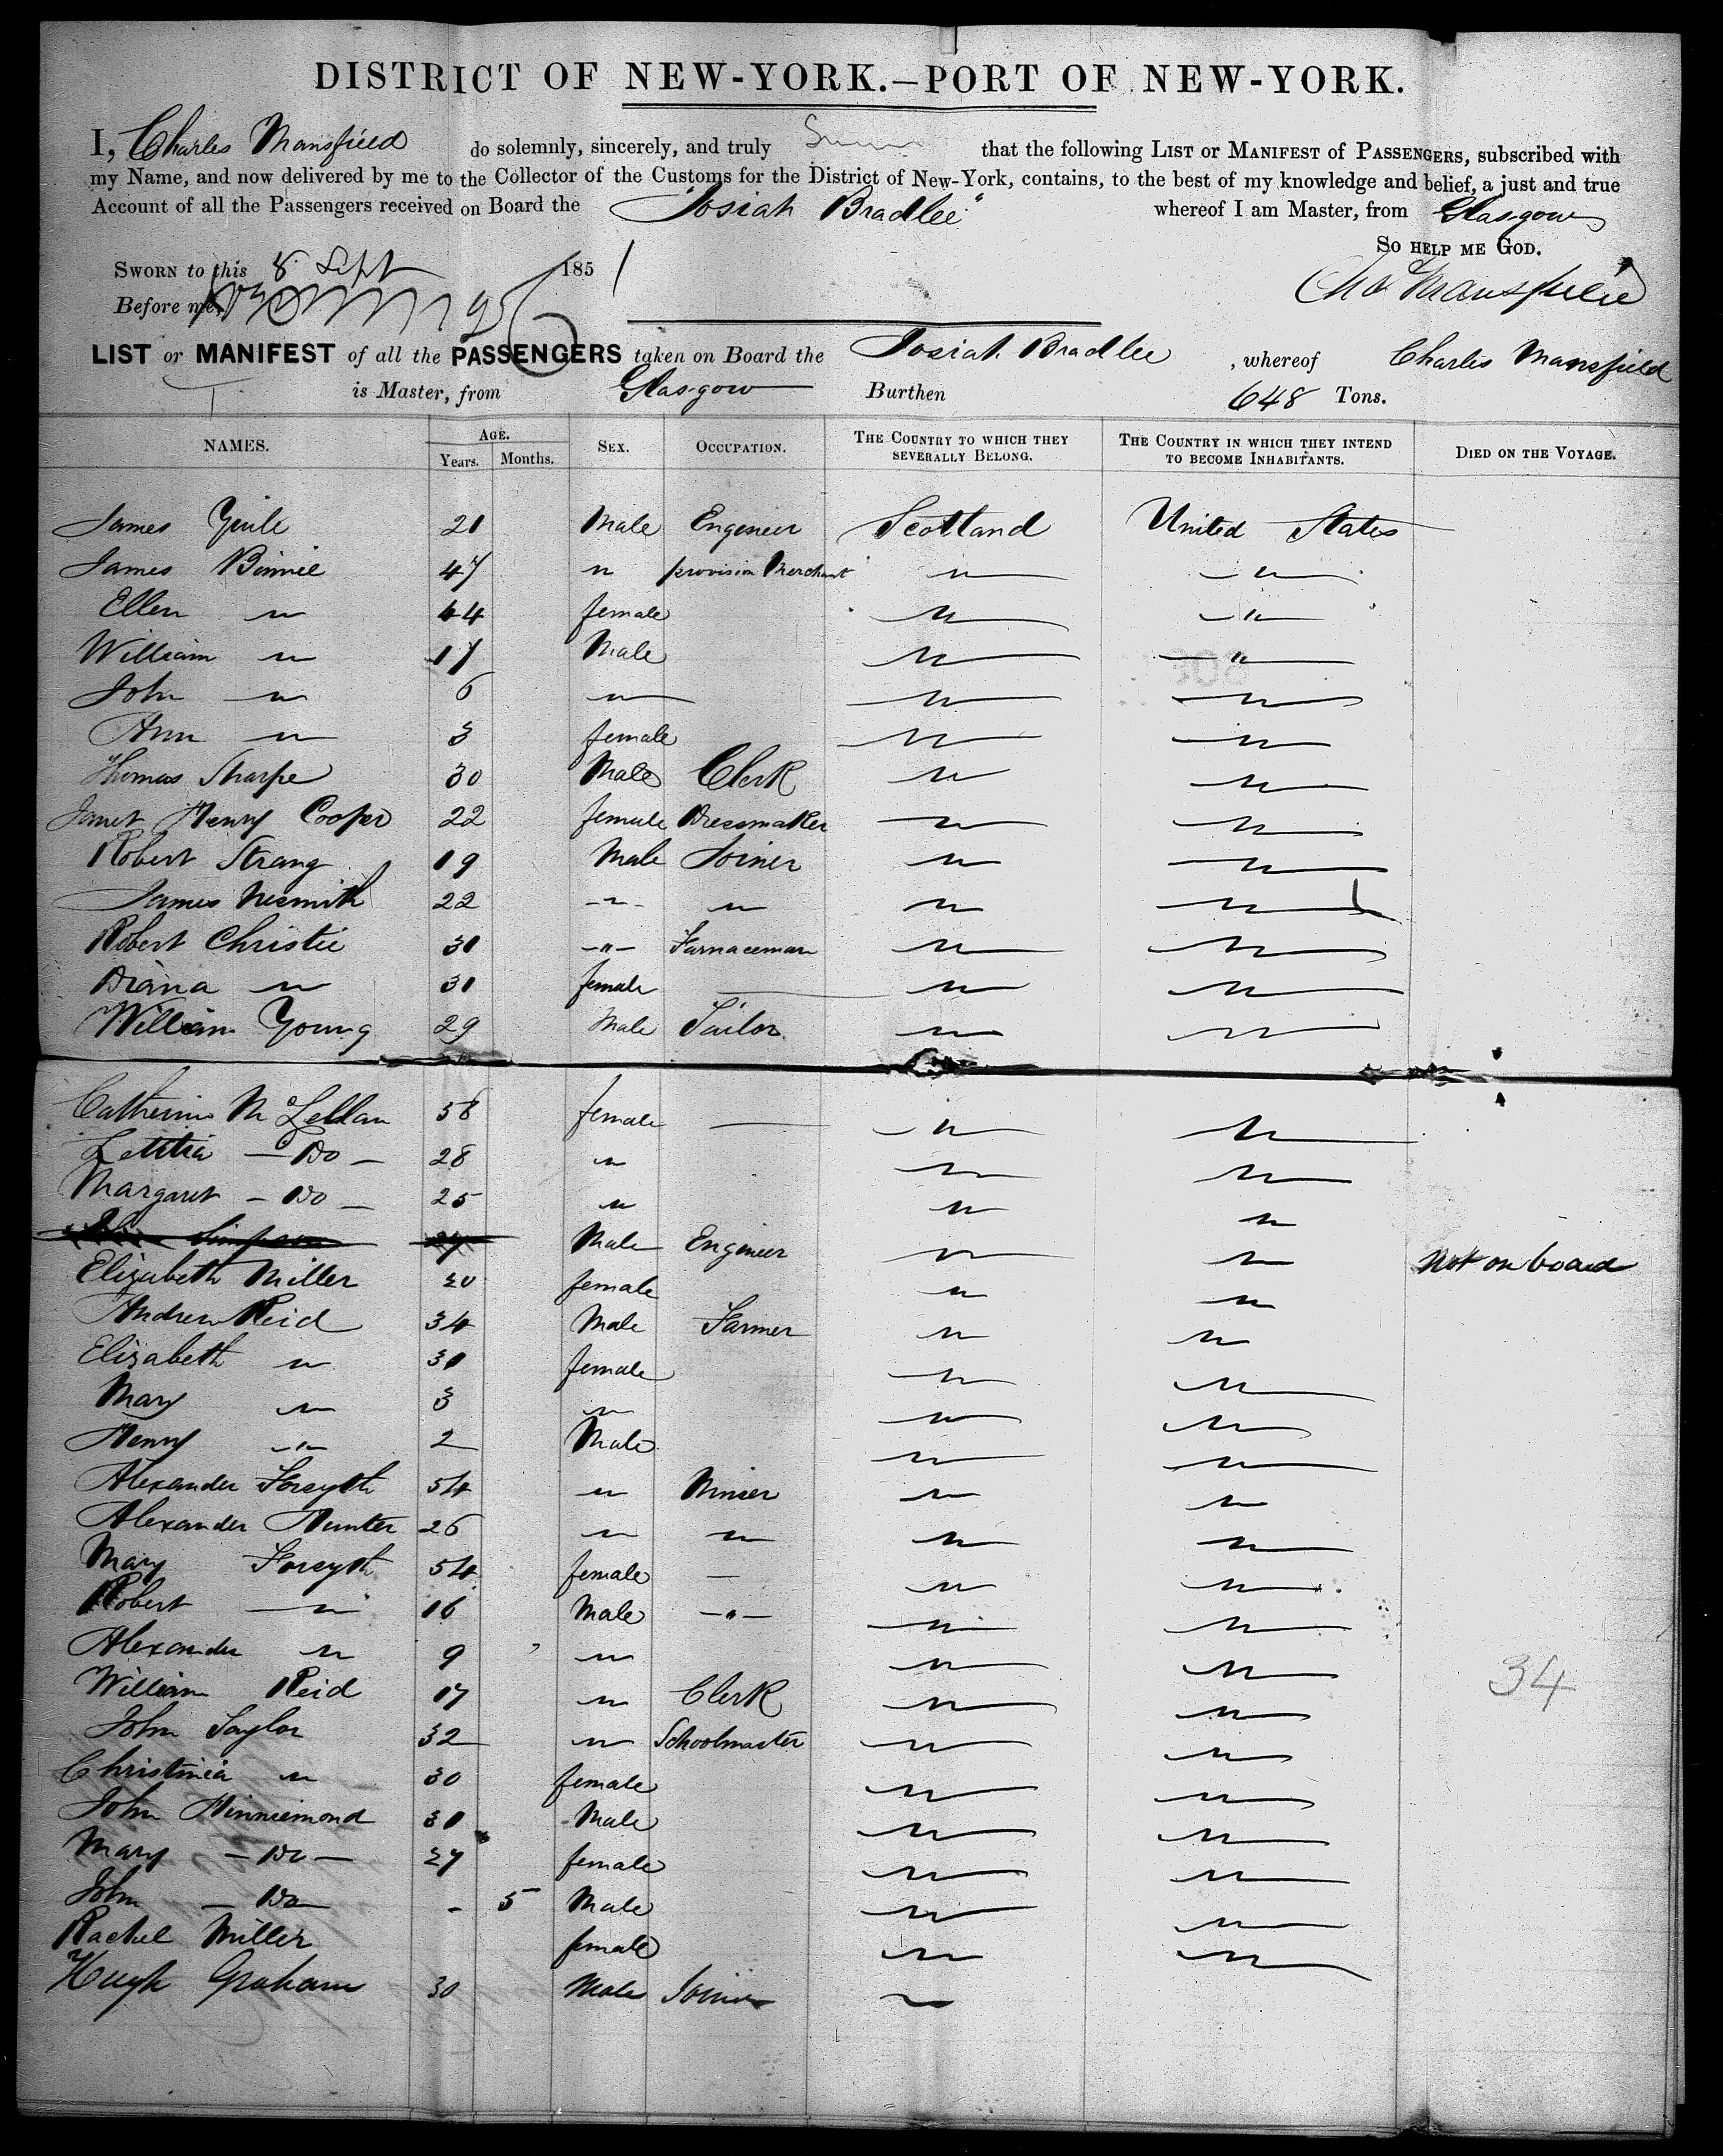 DISTRICT OF NEW-YORK.—PORT OF NEW-YORK.
I, Charles Mansfield do solemnly, sincerely, and truly that the following LIST or MANIFEST of PASSENGERS, subscribed with
my Name, and now delivered by me to the Collector of the Customs for the District of New-York, contains, to the best of my knowledge and belief, a just and true
Account of all the Passengers received on Board the "Josiah Bradlee" whereof I am Master, from Glasgow
SO HELP ME GOD.
SWORN to this 8 Sept 1851
Chs Mansfield
Before me,
LIST or MANIFEST of all the PASSENGERS taken on Board the Josiah Bradlee, whereof Charles Mansfield
is Master, from Glasgow Burthen 648 Tons.
NAMES. AGE. Years. Months. SEX. OCCUPATION. THE COUNTRY TO WHICH THEY SEVERALLY BELONG. THE COUNTRY IN WHICH THEY INTEND TO BECOME INHABITANTS. DIED ON THE VOYAGE.
James Yuile 21 Male Engineer Scotland United States
James Binnie 47 " provision Merchant " "
Ellen " 44 female " "
William " 17 Male " "
John " 6 " " "
Ann " 3 female " "
Thomas Sharpe 30 Male Clerk " "
Janet Henry Cooper 22 female Dressmaker " "
Robert Strang 19 Male Joiner " "
James Nesmith 22 " " " "
Robert Christie 31 " Furnaceman " "
Diana " 31 female — " "
William Young 29 Male Tailor " "
Catherine McLellan 58 female — " "
Letitia — Do — 28 " " "
Margaret — Do — 25 " " "
Simpson 27 Male Engineer " " Not on board
Elizabeth Miller 20 female " "
Andrew Reid 34 Male Farmer " "
Elizabeth " 31 female " "
Mary " 3 " " "
Henry " 2 Male " "
Alexander Forsyth 54 " Miner " "
Alexander Hunter 26 " " " "
Mary Forsyth 54 female — " "
Robert " 16 Male " " "
Alexander " 9 " " "
William Reid 17 " Clerk " "
34
John Taylor 32 " Schoolmaster " "
Christinia " 30 female " "
John Hinniemond 31 Male " "
Mary — Do — 27 female " "
John — Do — - 5 Male " "
Rachel Miller female " "
Hugh Graham 30 Male Joiner "